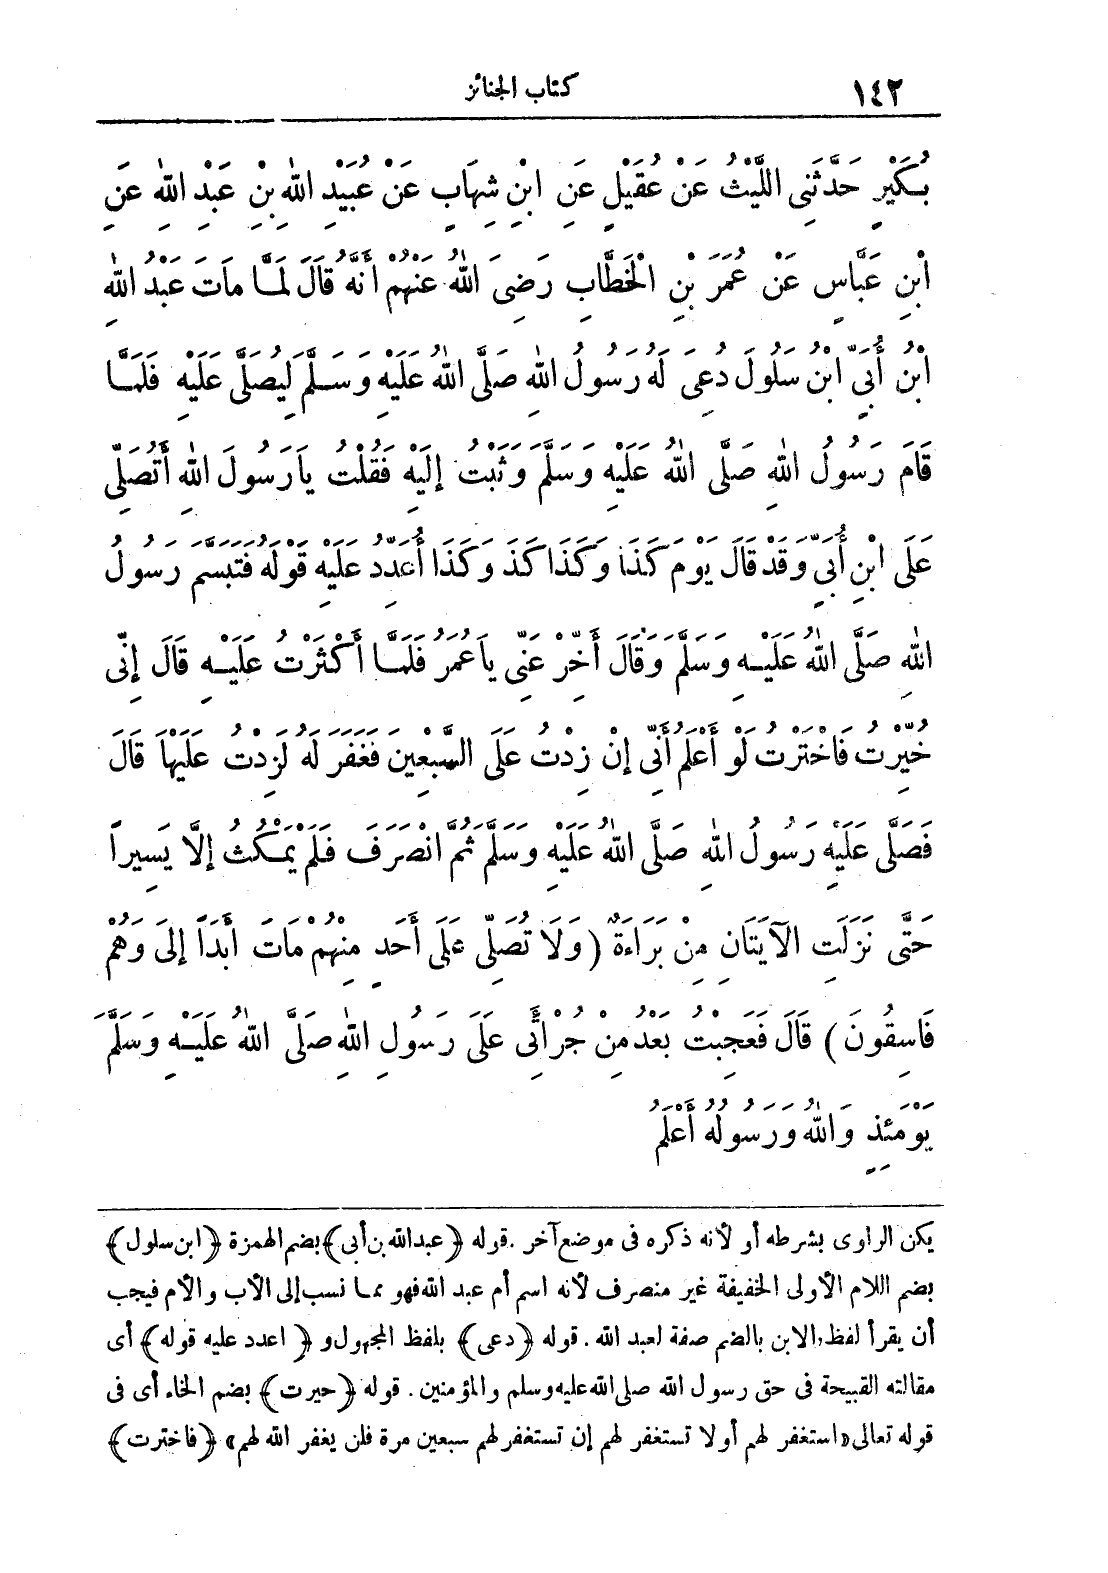 ١٤٢ كتاب الجنائز
بُكَيْرٍ حَدَّثَنِى اللَّيْثُ عَنْ عُقَيْلٍ عَنِ ابْنِ شِهَابٍ عَنْ عُبَيْدِ اللهِ بْنِ عَبْدِ اللهِ عَنِ
ابْنِ عَبَّاسٍ عَنْ عُمَرَ بْنِ الْخَطَّابِ رَضِىَ اللهُ عَنْهُمْ أَنَّهُ قَالَ لَمَّا مَاتَ عَبْدُ اللهِ
ابْنُ أُبَىٍّ ابْنُ سَلُولَ دُعِىَ لَهُ رَسُولُ اللهِ صَلَّى اللهُ عَلَيْهِ وَسَلَّمَ لِيُصَلِّىَ عَلَيْهِ فَلَمَّا
قَامَ رَسُولُ اللهِ صَلَّى اللهُ عَلَيْهِ وَسَلَّمَ وَثَبْتُ إِلَيْهِ فَقُلْتُ يَارَسُولَ اللهِ أَتُصَلِّى
عَلَى ابْنِ أُبَىٍّ وَقَدْ قَالَ يَوْمَ كَذَا وَكَذَا كَذَ وَكَذَا أُعَدِّدُ عَلَيْهِ قَوْلَهُ فَتَبَسَّمَ رَسُولُ
اللهِ صَلَّى اللهُ عَلَيْهِ وَسَلَّمَ وَقَالَ أَخِّرْ عَنِّى يَاعُمَرُ فَلَمَّا أَكْثَرْتُ عَلَيْهِ قَالَ إِنِّى
خُيِّرْتُ فَاخْتَرْتُ لَوْ أَعْلَمُ أَنِّى إِنْ زِدْتُ عَلَى السَّبْعِينَ فَغُفِرَ لَهُ لَزِدْتُ عَلَيْهَا قَالَ
فَصَلَّى عَلَيْهِ رَسُولُ اللهِ صَلَّى اللهُ عَلَيْهِ وَسَلَّمَ ثُمَّ انْصَرَفَ فَلَمْ يَمْكُثْ إِلَّا يَسِيراً
حَتَّى نَزَلَتِ الآيَتَانِ مِنْ بَرَاءَةٌ (وَلَا تُصَلِّى عَلَى أَحَدٍ مِنْهُمْ مَاتَ أَبَداً إِلَى وَهُمْ
فَاسِقُونَ) قَالَ فَعَجِبْتُ بَعْدُ مِنْ جُرْأَتِى عَلَى رَسُولِ اللهِ صَلَّى اللهُ عَلَيْهِ وَسَلَّمَ
يَوْمَئِذٍ وَاللهُ وَرَسُولُهُ أَعْلَمُ
يكن الراوى بشرطه أو لأنه ذكره فى موضع آخر. قوله ﴿عبدالله بن أبى﴾ بضم الهمزة ﴿ابن سلول﴾
بضم اللام الأولى الخفيفة غير منصرف لأنه اسم أم عبد الله فهو مما نسب إلى الأب والأم فيجب
أن يقرأ لفظ الابن بالضم صفة لعبد الله. قوله ﴿دعى﴾ بلفظ المجهول و ﴿اعدد عليه قوله﴾ أى
مقالته القبيحة فى حق رسول الله صلى الله عليه وسلم والمؤمنين. قوله ﴿خيرت﴾ بضم الخاء أى فى
قوله تعالى «استغفر لهم أو لا تستغفر لهم إن تستغفر لهم سبعين مرة فلن يغفر الله لهم» ﴿فاخترت﴾